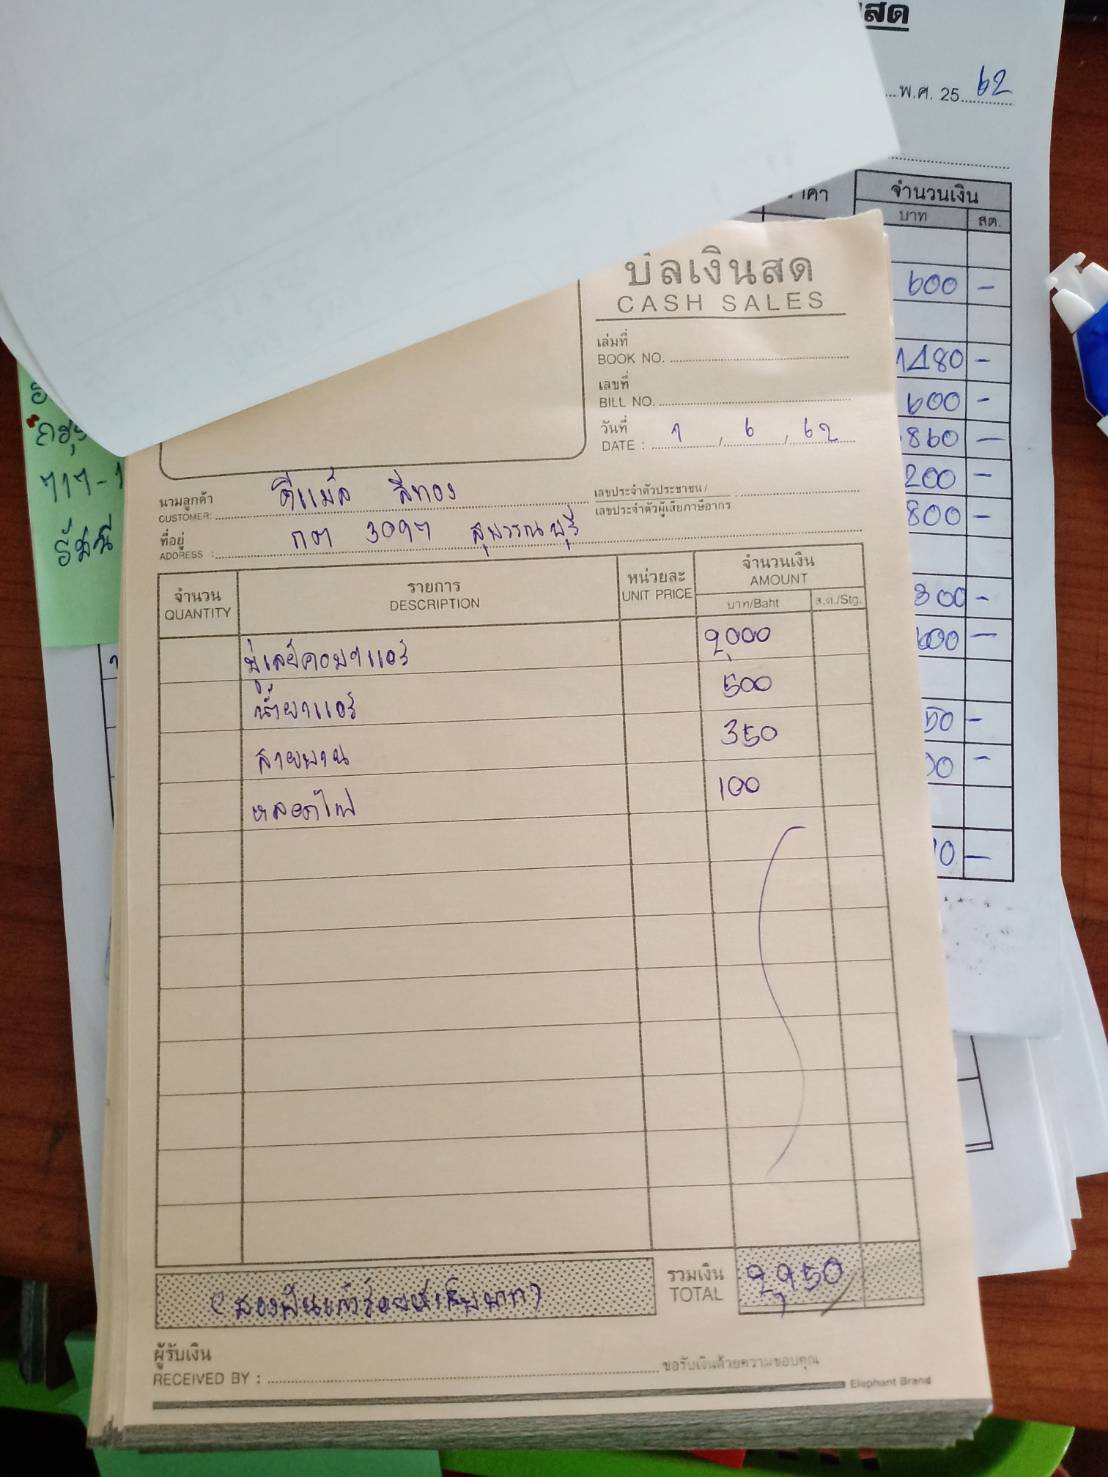 สด
พ.ศ. 25 62
จำนวนเงิน
บาท สต.
600 –
1480 –
600 –
860 –
200 –
800 –
300 –
600 –
50 –
00 –
10 –
717-1
บิลเงินสด
CASH SALES
เล่มที่
BOOK NO.
เลขที่
BILL NO.
วันที่
DATE : 7 , 6 , 62
นามลูกค้า ดีแม็ก สีทอง เลขประจำตัวประชาชน / :
CUSTOMER: เลขประจำตัวผู้เสียภาษีอากร
ที่อยู่ กต 3097 สุพรรณบุรี
ADDRESS :
จำนวน รายการ หน่วยละ จำนวนเงิน
QUANTITY DESCRIPTION UNIT PRICE AMOUNT
บาท/Baht ส.ต./Stg.
มู่เลย์คอมฯแอร์ 2,000
น้ำยาแอร์ 500
สายพาน 350
หลอดไฟ 100
(สองพันเก้าร้อยห้าสิบบาท) รวมเงิน 2,950
TOTAL
ผู้รับเงิน ขอรับเงินด้วยความขอบคุณ
RECEIVED BY :
Elephant Brand